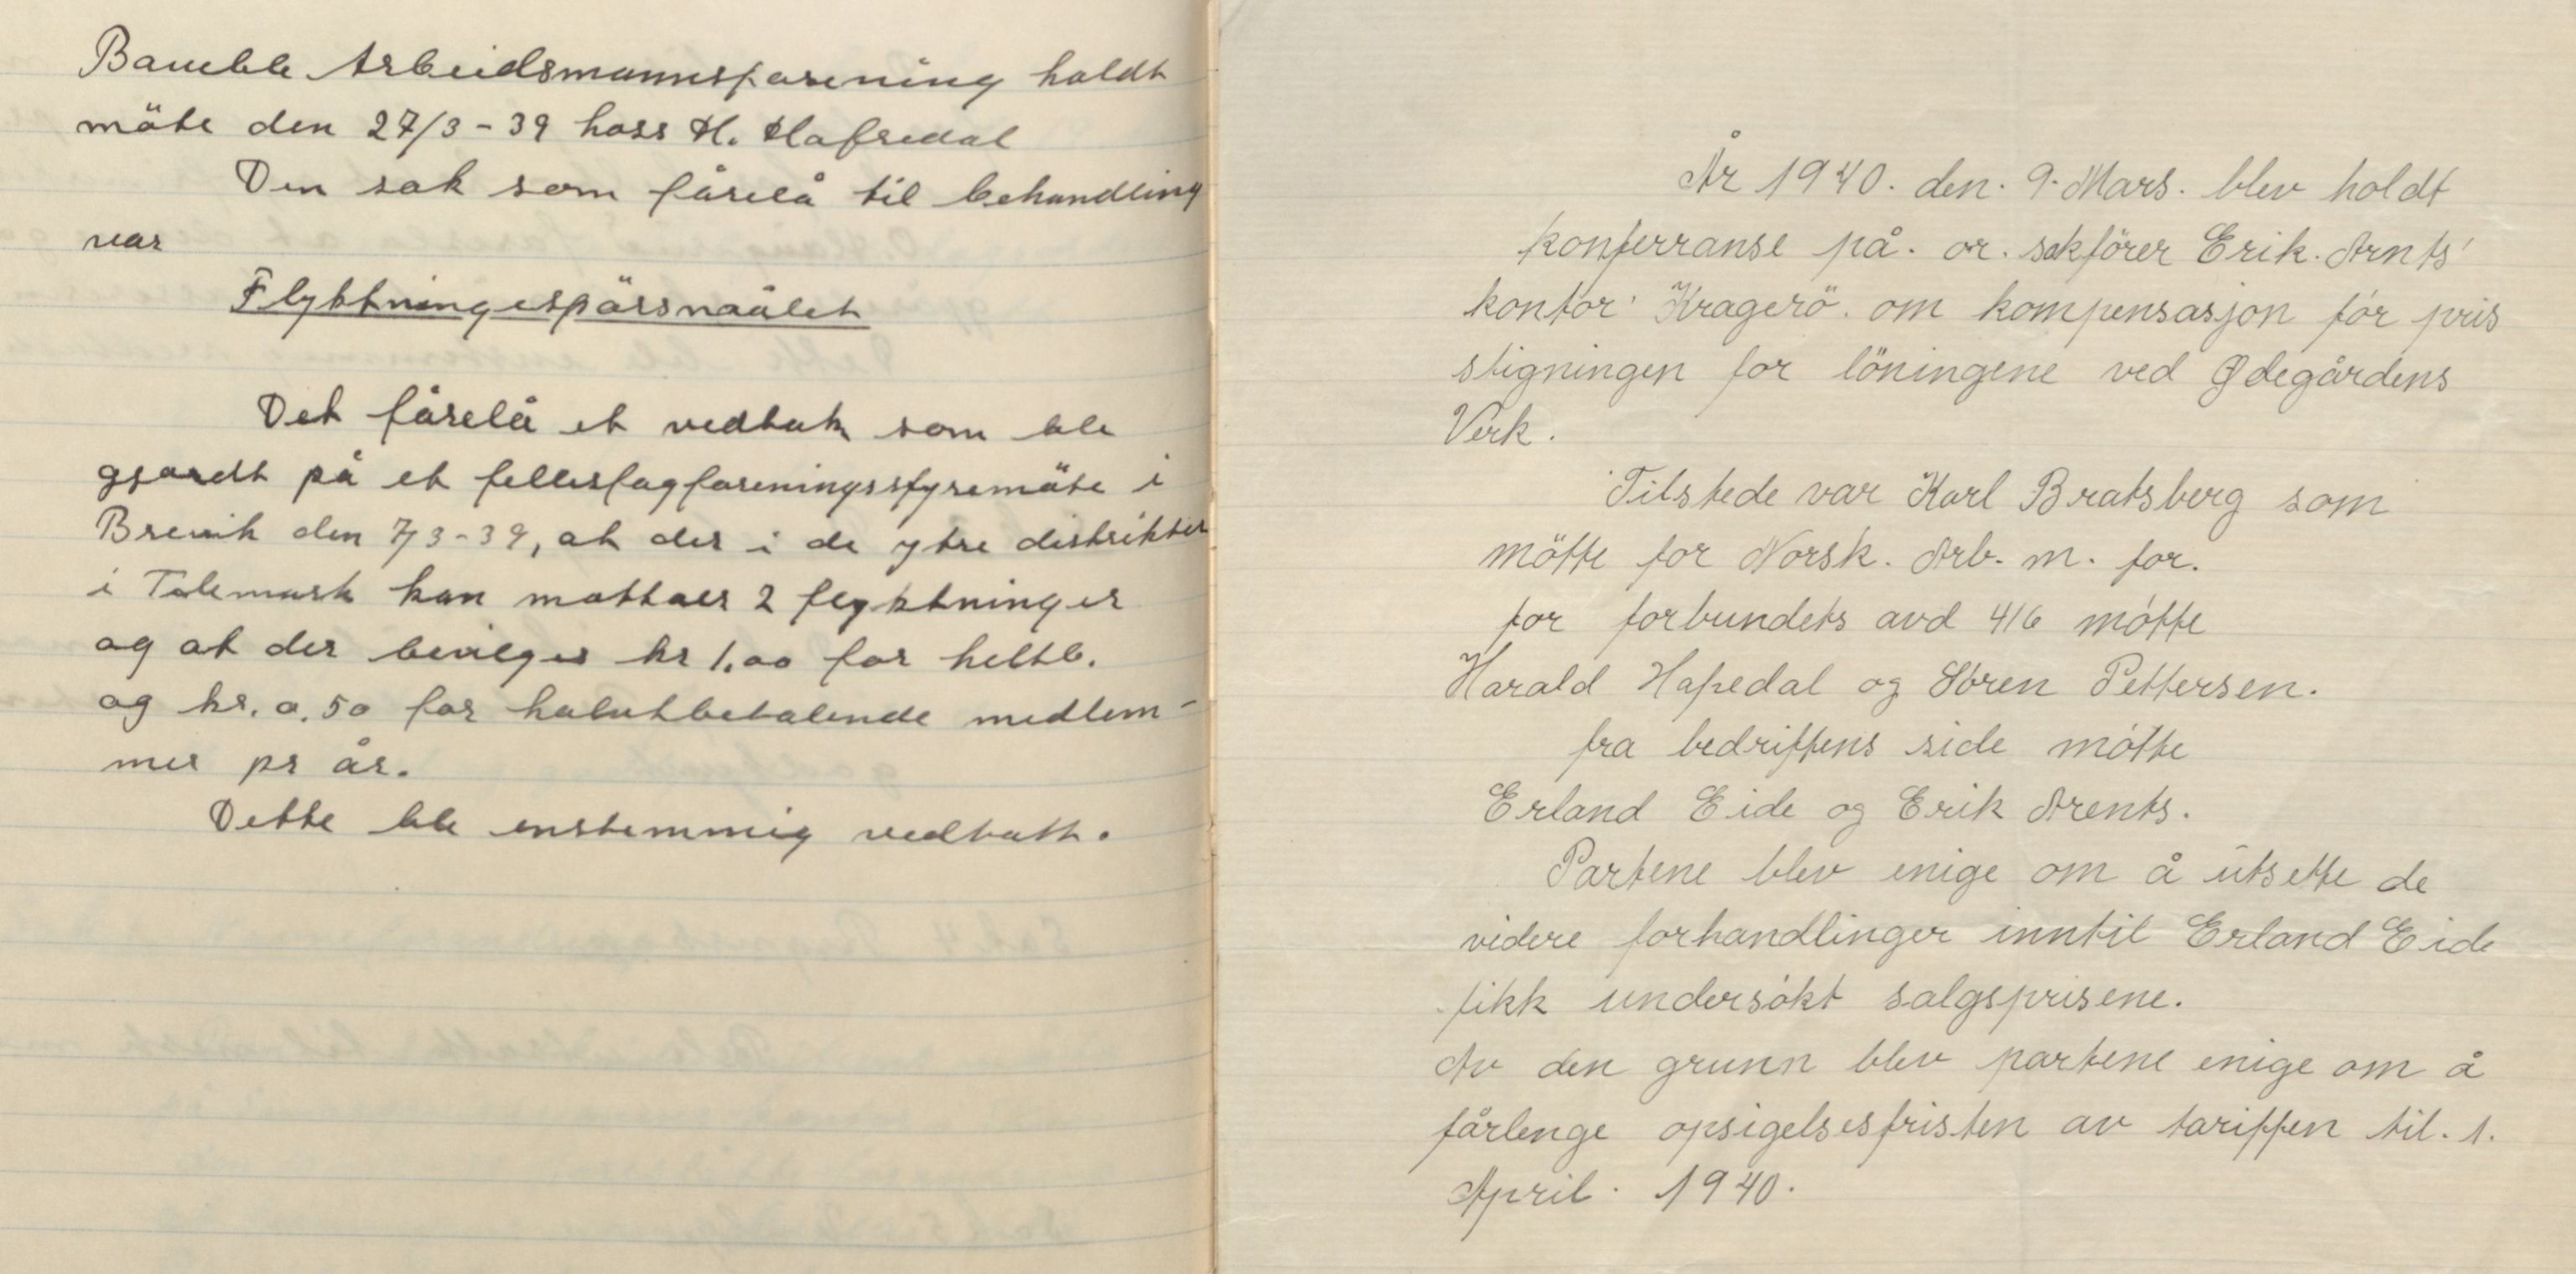 Bamble Arbeidsmannsforening holdt
möte den 27/3-39 hoss H. Hafredal
Den sak som fårelå til behandling
var
Flyktningespörsmåålet
Det fårelå et vedtak som ble
gjordt på et fellesfagforeningsstyremöte i
Brevik den 7/3-39, at der i de ytre distrikter
i Telemark kan mottaes 2 flyktninger
og at der bevilges kr 1,00 for heltb.
og kr. 0,50 for halvtbetalende medlem-
mer pr år.
Dette ble enstemmig vedtatt.
År 1940. den. 9. Mars. blev holdt
konferranse på. or. sakförer Erik. Arnts'
kontor Kragerö. om kompensasjon for pris
stigningen for löningene ved Ødegårdens
Verk.
Tilstede var Karl Bratsberg som
mötte for Norsk. Arb. m. for.
for forbundets avd 416 mötte
Harald Hafredal og Sören Pettersen.
fra bedriftens side mötte
Erland Eide og Erik Arents.
Partene blev enige om å utsette de
videre forhandlinger inntil Erland Eide
fikk undersökt salgsprisene.
Av den grunn blev partene enige om å
fårlenge opsigelsesfristen av tariffen til. 1.
April. 1940.